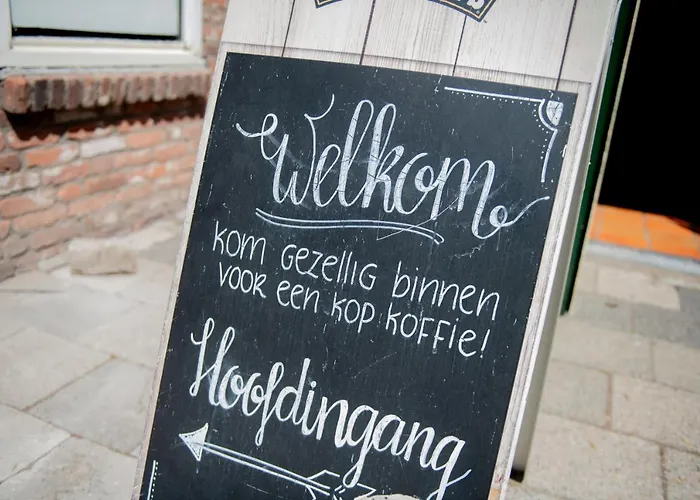 Welkom
kom gezellig binnen
voor een kop koffie!
Hoofdingang